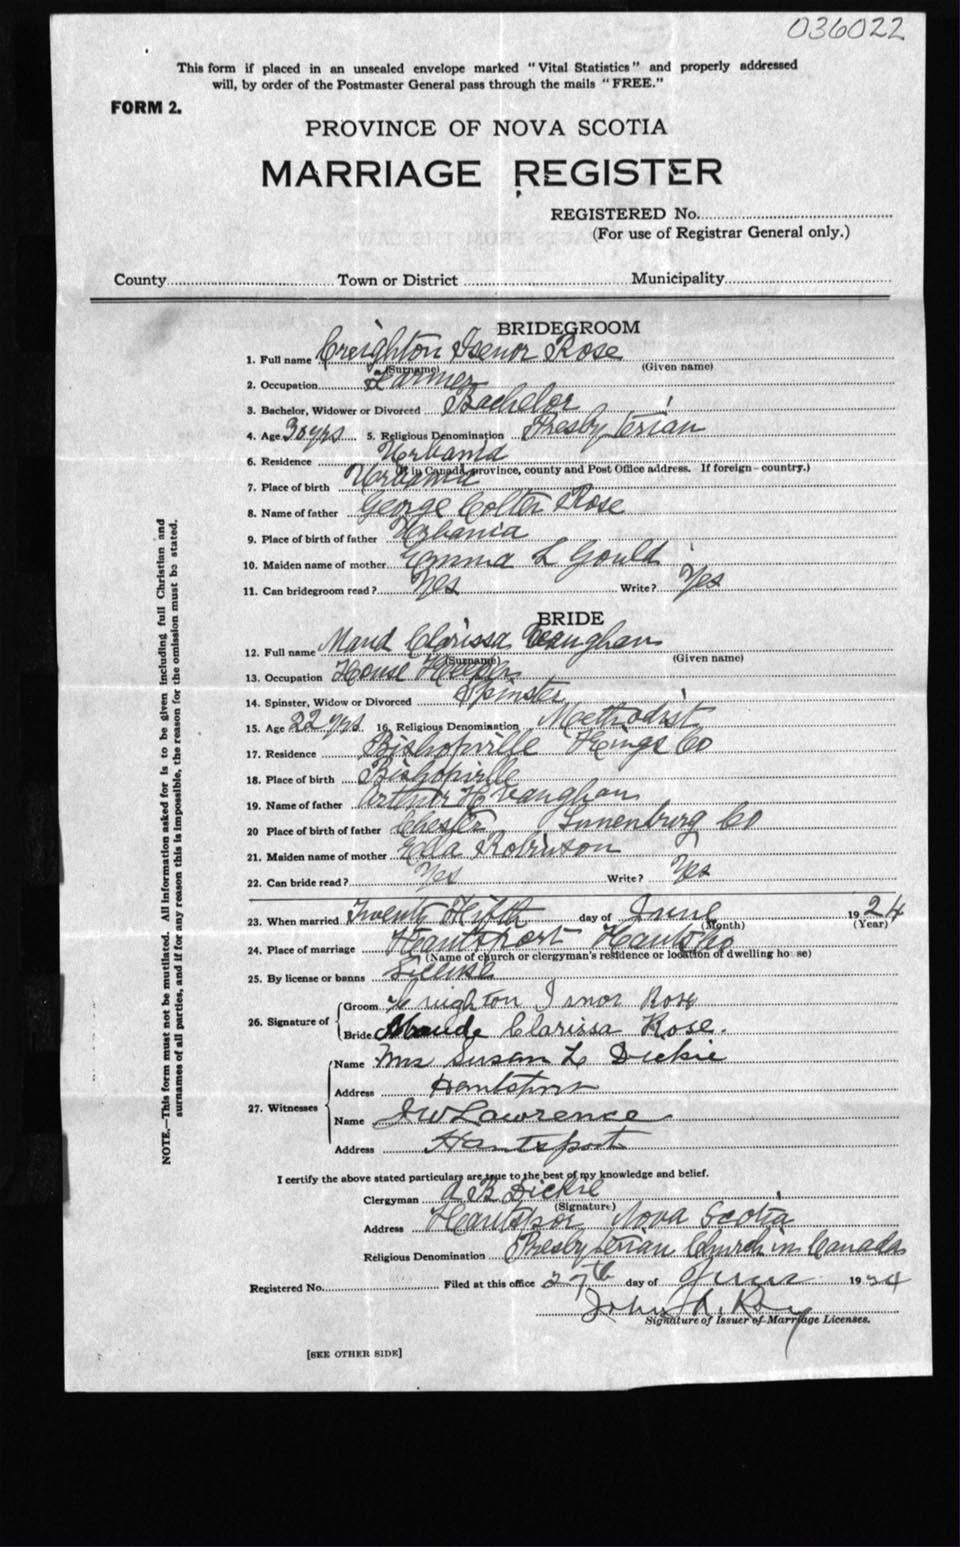 036022
This form if placed in an unsealed envelope marked "Vital Statistics" and properly addressed
will, by order of the Postmaster General pass through the mails "FREE."
FORM 2.
PROVINCE OF NOVA SCOTIA
MARRIAGE REGISTER
REGISTERED No.
(For use of Registrar General only.)
County Town or District Municipality
BRIDEGROOM
1. Full name Creighton Isenor Rose
(Surname) (Given name)
2. Occupation Farmer
3. Bachelor, Widower or Divorced Bachelor
4. Age 30 yrs 5. Religious Denomination Presbyterian
6. Residence Urbania
(If in Canada, province, county and Post Office address. If foreign - country.)
7. Place of birth Urbania
8. Name of father George Colter Rose
9. Place of birth of father Urbania
10. Maiden name of mother Emma L Gould
11. Can bridegroom read? Yes Write? Yes
BRIDE
12. Full name Maud Clarissa Vaughan
(Surname) (Given name)
13. Occupation House Keeper
14. Spinster, Widow or Divorced Spinster
15. Age 22 yrs 16. Religious Denomination Methodist
17. Residence Bishopville Kings Co
18. Place of birth Bishopville
19. Name of father Arthur H Vaughan
20 Place of birth of father Chester Lunenburg Co
21. Maiden name of mother Ella Robinson
22. Can bride read? Yes Write? Yes
23. When married Twenty Fifth day of June 1924
(Month) (Year)
24. Place of marriage Hantsport Hants Co
(Name of church or clergyman's residence or location of dwelling house)
25. By license or banns License
26. Signature of
Groom Creighton Isnor Rose
Bride Maude Clarissa Rose.
27. Witnesses
Name Mrs Susan L Dickie
Address Hantsport
Name Lawrence
Address Hantsport
I certify the above stated particulars are true to the best of my knowledge and belief.
Clergyman A B Dickie
(Signature)
Address Hantsport Nova Scotia
Religious Denomination Presbyterian Church in Canada
Registered No. Filed at this office 27th day of June 1924
John A. Roy
Signature of Issuer of Marriage Licenses.
[SEE OTHER SIDE]
NOTE.—This form must not be mutilated. All information asked for is to be given including full Christian and
surnames of all parties, and if for any reason this is impossible, the reason for the omission must be stated.